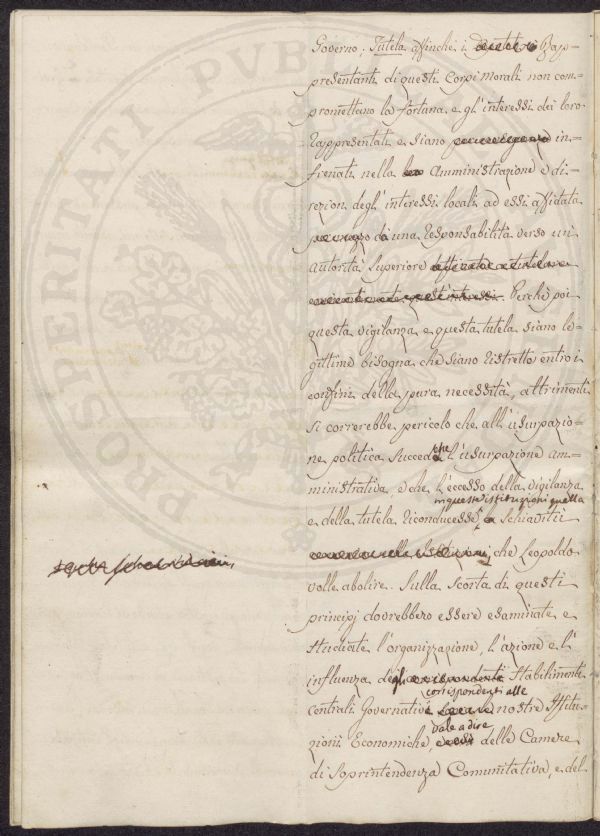 Governo; Tutela affinche i Rap-
presentanti di questi Corpi Morali non com-
promettano la fortuna e gl'interessi dei loro
Rappresentati e siano in-
frenati nella Amministrazione e di-
rezion degl'interessi locali ad essi affidata
da una Responsabilità verso un
autorità superiore
Perchè poi
questa vigilanza e questa tutela siano le-
gittime bisogna che siano ristrette entro i
confini della pura necessità, altrimenti
si correrebbe pericolo che all'usurpazio-
ne politica succed che l'usurpazione am-
ministrativa e che l'eccesso della vigilanza
in queste istituzioni quella
e della tutela riconducesse Schiavitù
che Leopoldo
volle abolire. Sulla scorta di questi
principj dovrebbero essere esaminate e
studiate l'organizzazione, l'azione e l'
influenza degli Stabilimenti
corrispondenti alle
centrali Governativi nostre Istitu-
vale a dire
zioni Economiche, delle Camere
di Soprintendenza Comunitativa, e del
PROSPERITATI PUBLI